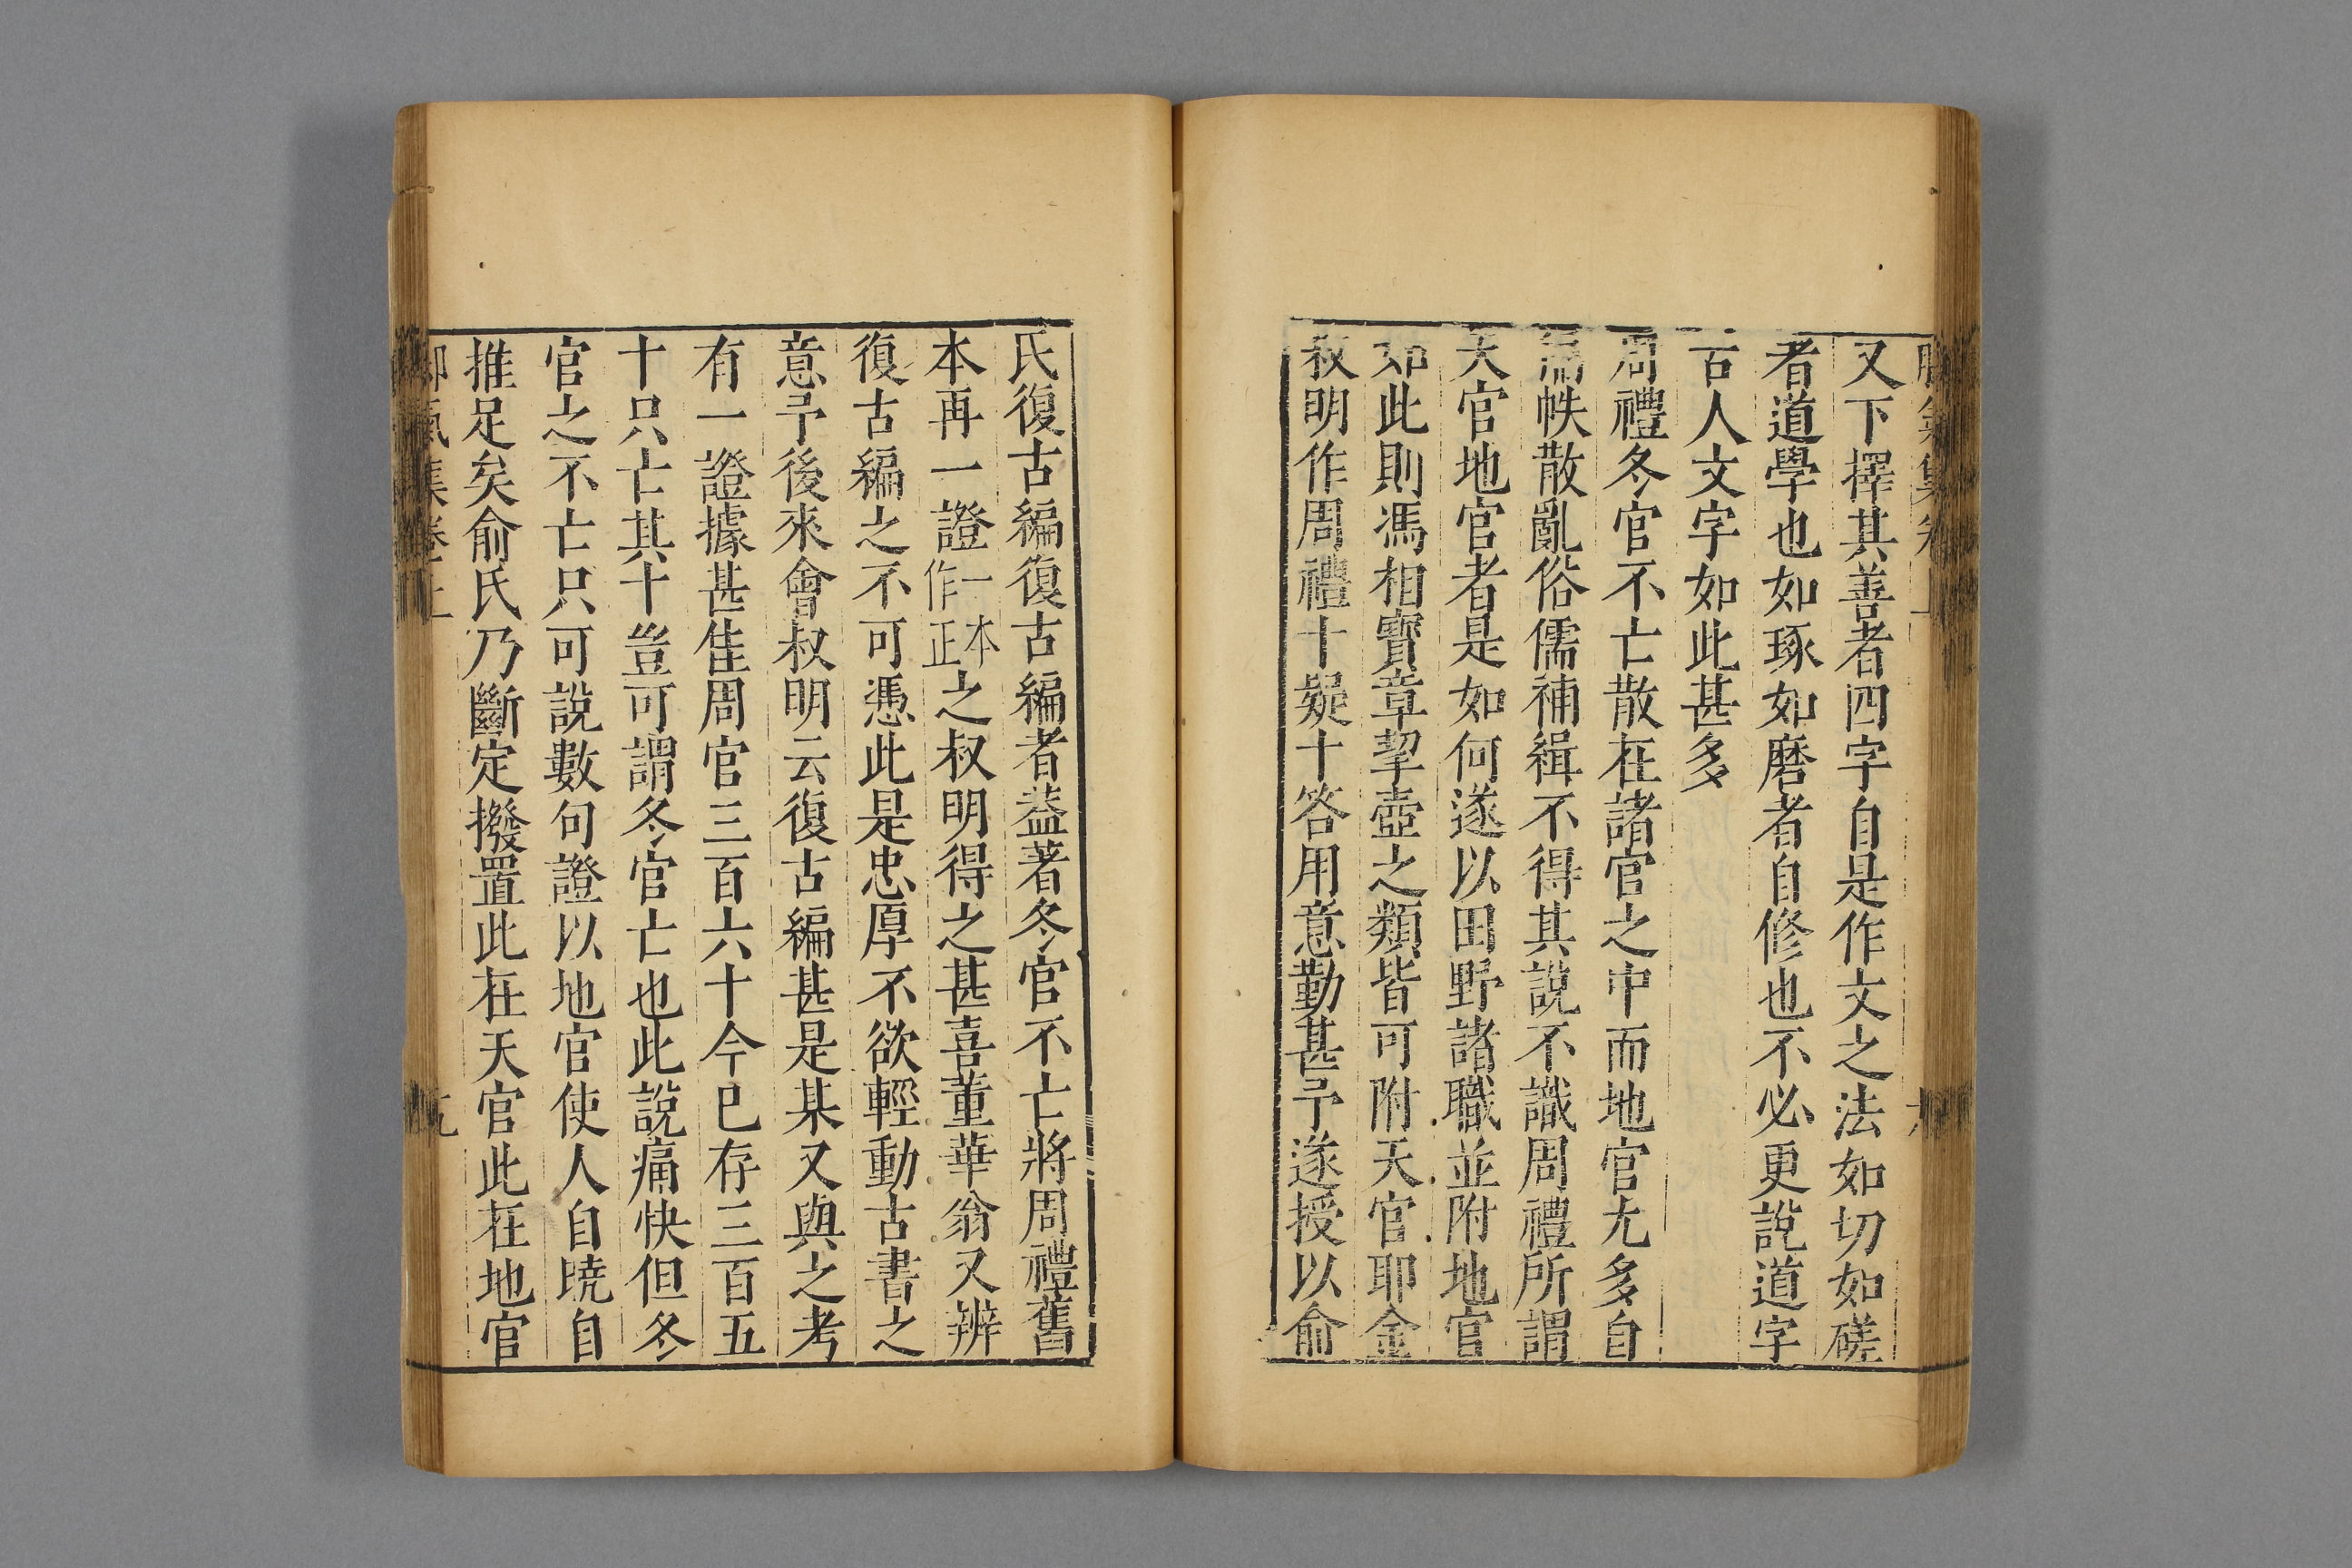 又下擇其善者四字自是作文之法如切如磋
者道學也如琢如磨者自修也不必更說道字
古人文字如此甚多
周禮冬官不亡散在諸官之中而地官尤多自
漏帙散亂俗儒補緝不得其說不識周禮所謂
天官地官者是如何遂以田野諸職並附地官
如此則馮相寶章挈壺之類皆可附天官耶金
叔明作周禮十疑十答用意勤甚予遂授以俞
氏復古編復古編者葢著冬官不亡將周禮舊
本再一證一本作正之叔明得之甚喜董華翁又辨
復古編之不可憑此是忠厚不欲輕動古書之
意予後來會叔明云復古編甚是某又與之考
有一證據甚佳周官三百六十今已存三百五
十只亡其十豈可謂冬官亡也此說痛快但冬
官之不亡只可說數句證以地官使人自曉自
推足矣俞氏乃斷定撥置此在天官此在地官
腳氣集卷上